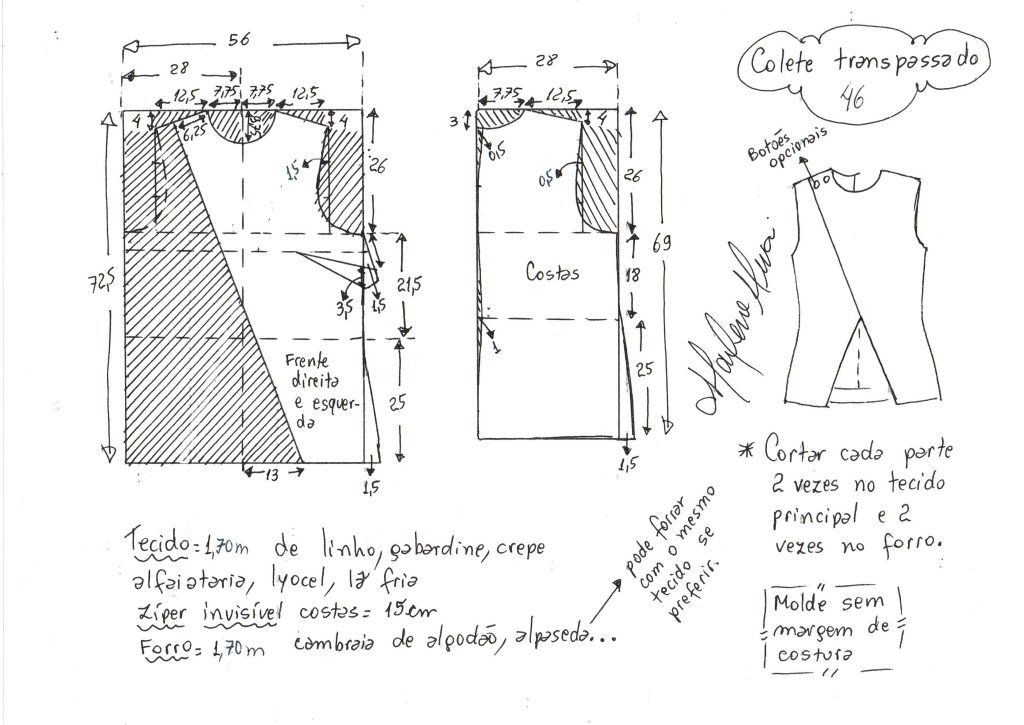 Colete transpassado
46
56
28
12,5 7,75 7,75 12,5
4
6,25
4
1,5
26
72,5
21,5
3,5
1,5
Frente
direita
e esquer-
da
25
13
1,5
28
7,75 12,5
3
4
0,5
0,5
26
69
Costas
18
1
25
1,5
Botões
opcionais
* Cortar cada parte
2 vezes no tecido
principal e 2
vezes no forro.
Molde sem
margem de
costura
Tecido = 1,70m de linho, gabardine, crepe
alfaiataria, lyocel, lã fria
Zíper invisível costas = 15cm
Forro = 1,70m cambraia de algodão, alpaseda...
pode forrar
com o mesmo
tecido se
preferir.